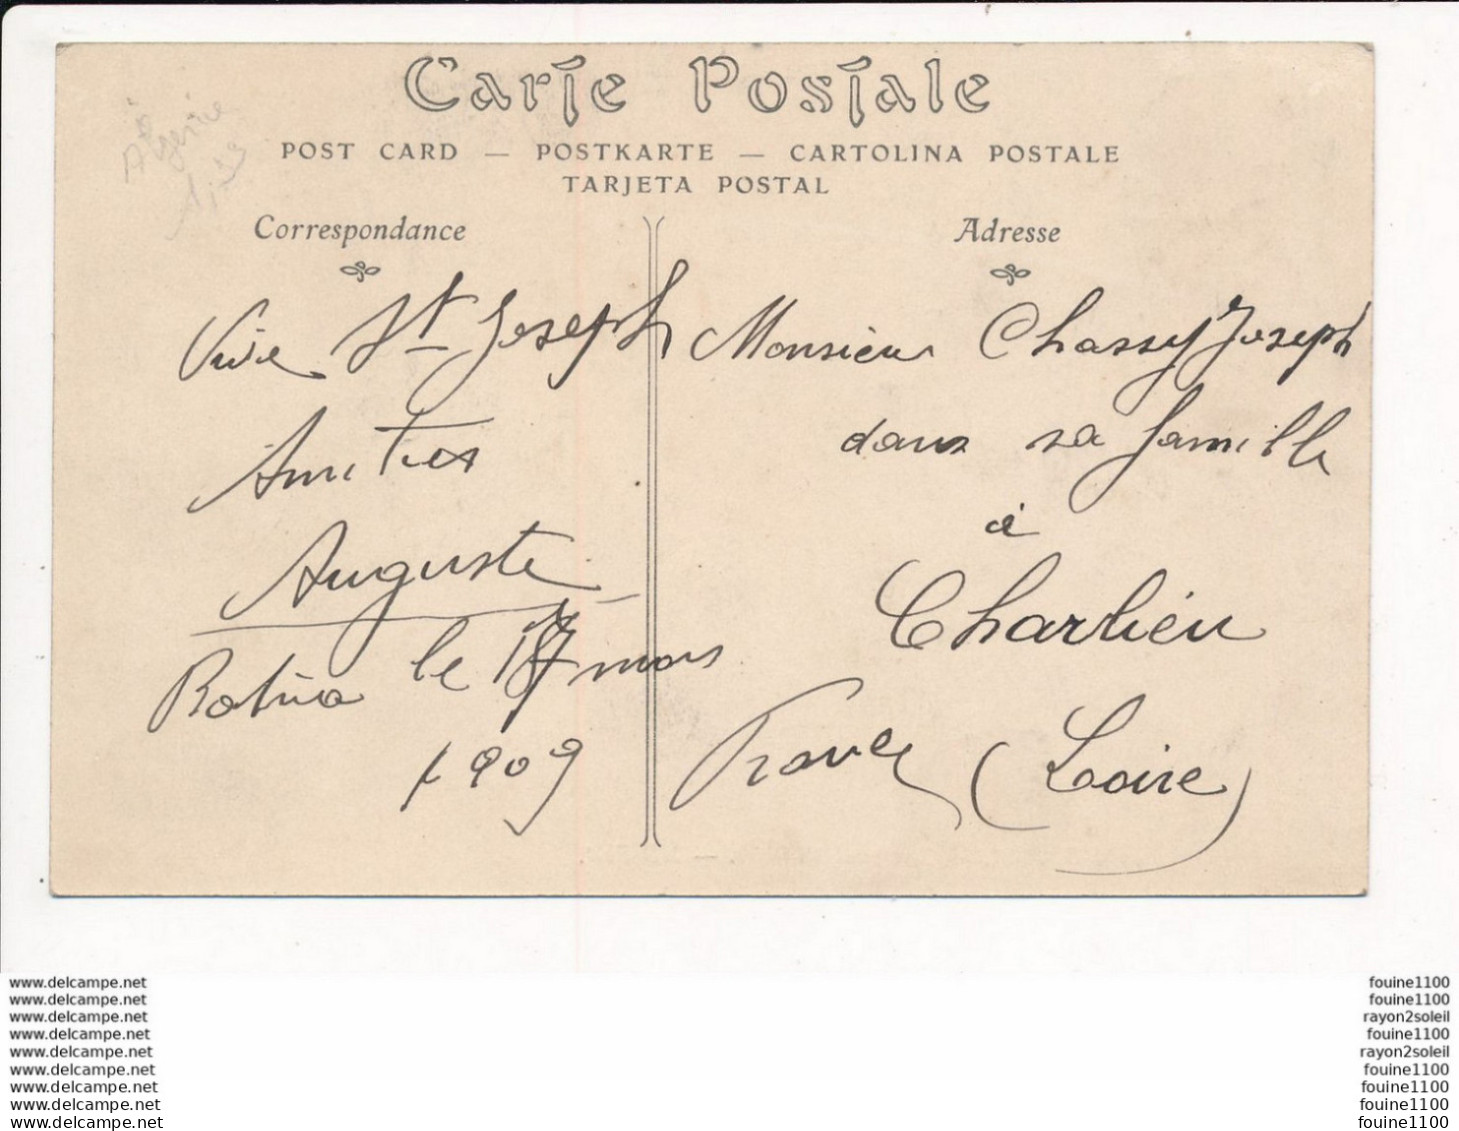 Carte Postale
POST CARD — POSTKARTE — CARTOLINA POSTALE
TARJETA POSTAL
Algérie
Correspondance
Vive St Joseph
Amitiés
Auguste
Batna le 17 mars
1909
Adresse
Monsieur Chassy Joseph
dans sa famille
à
Charlieu
France (Loire)
www.delcampe.net
www.delcampe.net
www.delcampe.net
www.delcampe.net
www.delcampe.net
www.delcampe.net
www.delcampe.net
www.delcampe.net
www.delcampe.net
fouine1100
fouine1100
rayon2soleil
fouine1100
rayon2soleil
fouine1100
fouine1100
fouine1100
fouine1100